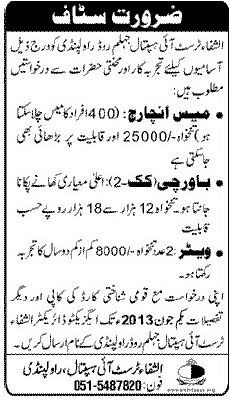 ضرورت سٹاف
الشفاء ٹرسٹ آئی ہسپتال جہلم روڈ راولپنڈی کو درج ذیل
آسامیوں کیلئے تجربہ کار اور محنتی حضرات سے درخواستیں
مطلوب ہیں:
● میس انچارج: (400 افراد کا میس چلا سکتا
ہو) تنخواہ -/25000 اور قابلیت پر بڑھائی بھی
جا سکتی ہے
● باورچی (کک-2): اعلیٰ معیاری کھانے پکانا
جانتا ہو۔ تنخواہ 12 ہزار سے 18 ہزار روپے حسب
قابلیت
● ویٹر: 2 عدد تنخواہ -/8000 کم از کم دو سال کا تجربہ
رکھتا ہو۔
اپنی درخواست مع قومی شناختی کارڈ کی کاپی اور دیگر
تفصیلات یکم جون 2013ء تک ایگزیکٹو ڈائریکٹر الشفاء
ٹرسٹ آئی ہسپتال جہلم روڈ راولپنڈی کے نام ارسال کریں۔
الشفاء ٹرسٹ آئی ہسپتال، راولپنڈی
فون: 051-5487820